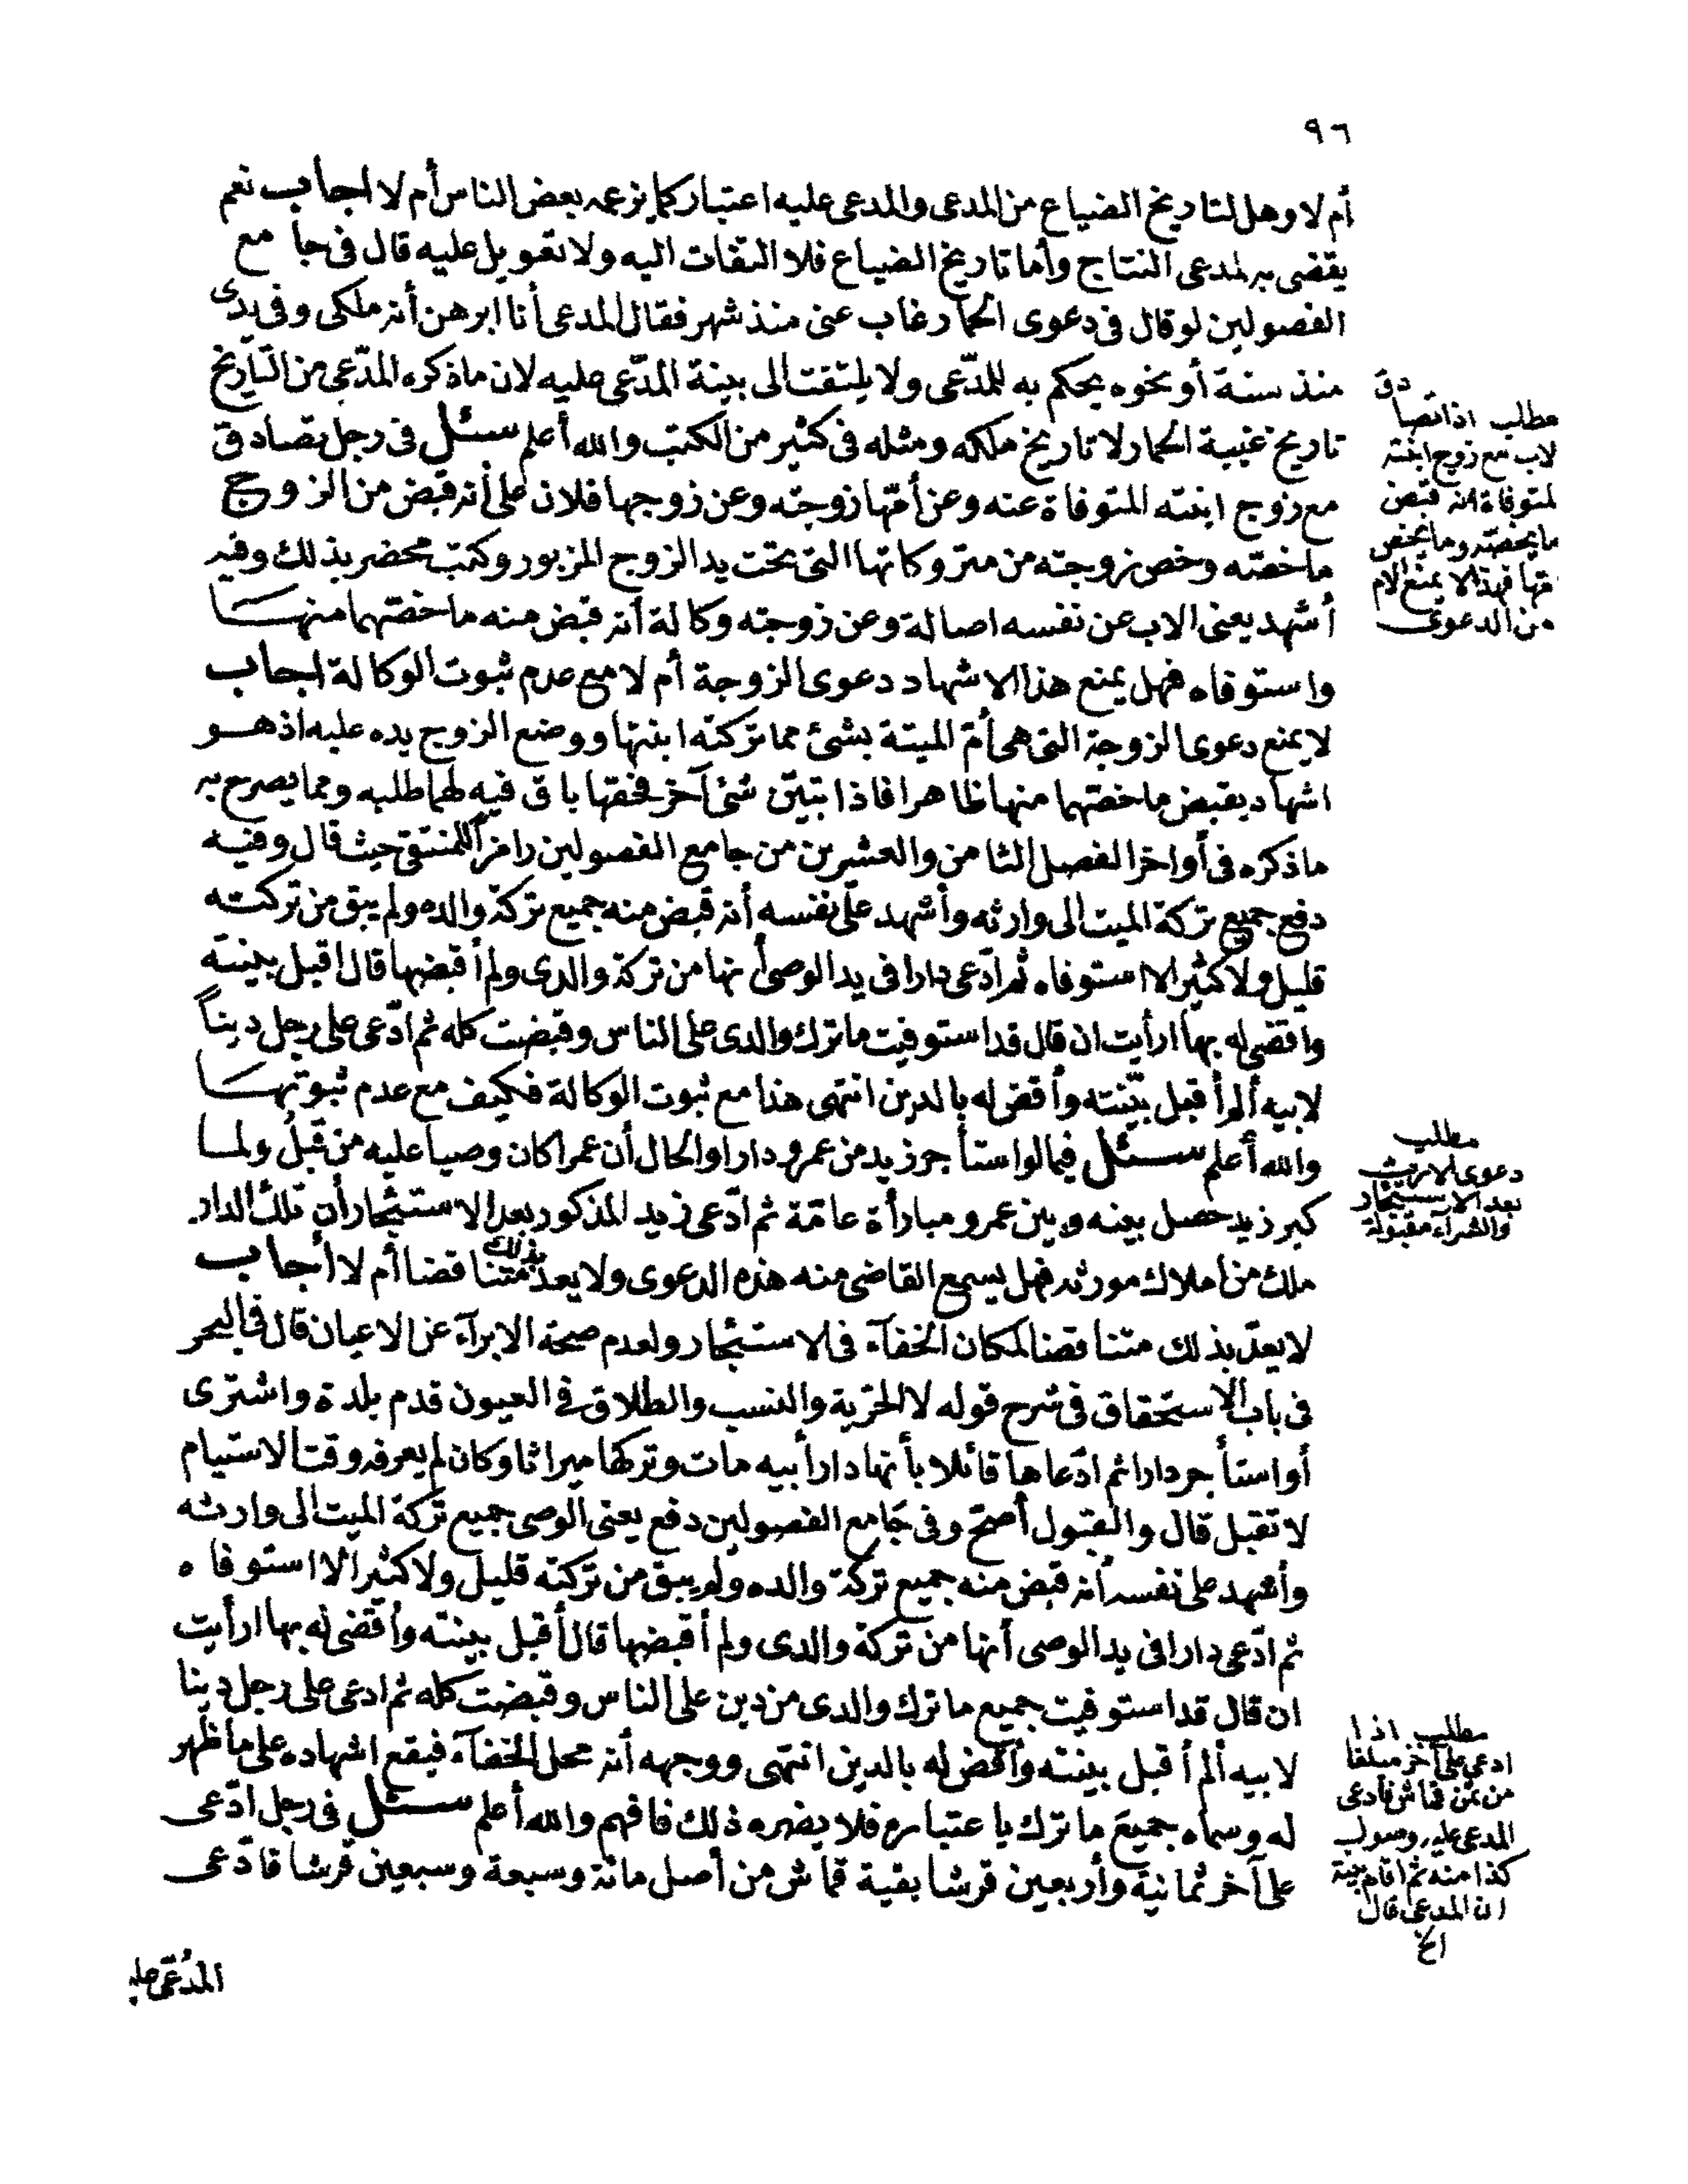 ٩٦
أم لا وهل لتاريخ الضياع من المدعى والمدعى عليه اعتبار كما يزعمه بعض الناس أم لا اجاب نعم
يقضى به لمدعى النتاج وأما تاريخ الضياع فلا التفات اليه ولا تعويل عليه قال فى جا مع
الفصولين لو قال فى دعوى الحمار غاب عنى منذ شهر فقال المدعى أنا ابرهن أنه ملكى وفى يدى
منذ سنة أو نحوه يحكم به للمدّعى ولا يلتفت الى بينة المدّعى عليه لان ماذكره المدّعى من التاريخ
تاريخ غيبة الحمار لا تاريخ ملكه ومثله فى كثير من الكتب والله أعلم سئل فى رجل تصادق
مع زوج ابنته المتوفاة عنه وعن أمّها زوجته وعن زوجها فلان على أنه قبض من الزوج
ماخصّه وخص زوجته من متروكاتها التى تحت يد الزوج المزبور وكتب محضر بذلك وفيه
أشهد يعنى الاب عن نفسه اصالة وعن زوجته وكالة أنه قبض منه ماخصّهما منها
واستوفاه فهل يمنع هذا الاشهاد دعوى الزوجة أم لا مع عدم ثبوت الوكالة اجاب
لا يمنع دعوى الزوجة التى هى أمّ الميتة بشئ مما تركته ابنتها ووضع الزوج يده عليه اذ هو
اشهاد بقبض ماخصّهما منها ظاهرا فاذا تبيّن شئ آخر فحقها باق فيه لهما طلبه ومما يصرح به
ماذكره فى أواخر الفصل الثامن والعشرين من جامع الفصولين رامزاً للمنتقى حيث قال وفيه
دفع جميع تركة الميت الى وارثه وأشهد على نفسه أنه قبض منه جميع تركة والده ولم يبق من تركته
قليل ولا كثير الا استوفاه ثم ادّعى دارا فى يد الوصى أنها من تركة والدى ولم أقبضها قال اقبل بينته
واقضى له بها ارأيت ان قال قد استوفيت ما ترك والدى على الناس وقبضت كله ثم ادّعى على رجل ديناً
لابيه ألم أقبل بيّنته وأقض له بالدين انتهى هذا مع ثبوت الوكالة فكيف مع عدم ثبوتها
والله أعلم سئل فيما لو استأجر زيد من عمرو دارا والحال أن عمرا كان وصيا عليه من قبلُ ولما
كبر زيد حصل بينه وبين عمرو مبارأة عامّة ثم ادّعى زيد المذكور بعد الاستئجار أن تلك الدار
ملك من املاك مورثه فهل يسمع القاضى منه هذه الدعوى ولا يعدّ بذلك متناقضا أم لا أجاب
لا يعدّ بذلك متناقضا لمكان الخفآء فى الاستئجار ولعدم صحة الابرآء عن الاعيان قال فى البحر
فى باب الاستحقاق فى شرح قوله لا الحرّية والنسب والطلاق فى العيون قدم بلدة واشترى
أو استأجر دارا ثم ادّعاها قائلا بأنها دار أبيه مات وتركها ميراثا وكان لم يعرفه وقت الاستيام
لا تقبل قال والقبول أصحّ وفى جَامع الفصولين دفع يعنى الوصى جميع تركة الميت الى وارثه
وأشهد على نفسه أنه قبض منه جميع تركة والده ولم يبق من تركته قليل ولا كثير الا استوفاه
ثم ادّعى دارا فى يد الوصى أنها من تركة والدى ولم أقبضها قال أقبل بينته وأقضى له بها ارأيت
ان قال قد استوفيت جميع ما ترك والدى من دين على الناس وقبضت كله ثم ادعى على رجل دينا
لابيه ألم أقبل بينته وأقض له بالدين انتهى ووجهه أنه محل الخفآء فيقع اشهاده على ما ظهر
له وسماه جميعَ ما ترك باعتباره فلا يضره ذلك فافهم والله أعلم سئل فى رجل ادّعى
على آخر ثمانية وأربعين قرشا بقية قماش من أصل مائة وسبعة وسبعين قرشا فادّعى
المدّعى عليه
مطلب اذا تصادق
لاب مع زوج ابنته
لمتوفاة انه قبض
ما يخصّه وما يخص
مها فهذا لا يمنع الام
من الدعوى
مطلب
دعوى الارث
بعد الاستئجار
والشرآء مقبولة
مطلب اذا
ادعى على آخر مبلغا
من ثمن قماش فادعى
المدعى عليه وصول
كذا منه ثم اقام بينة
ان المدعى قال
الخ